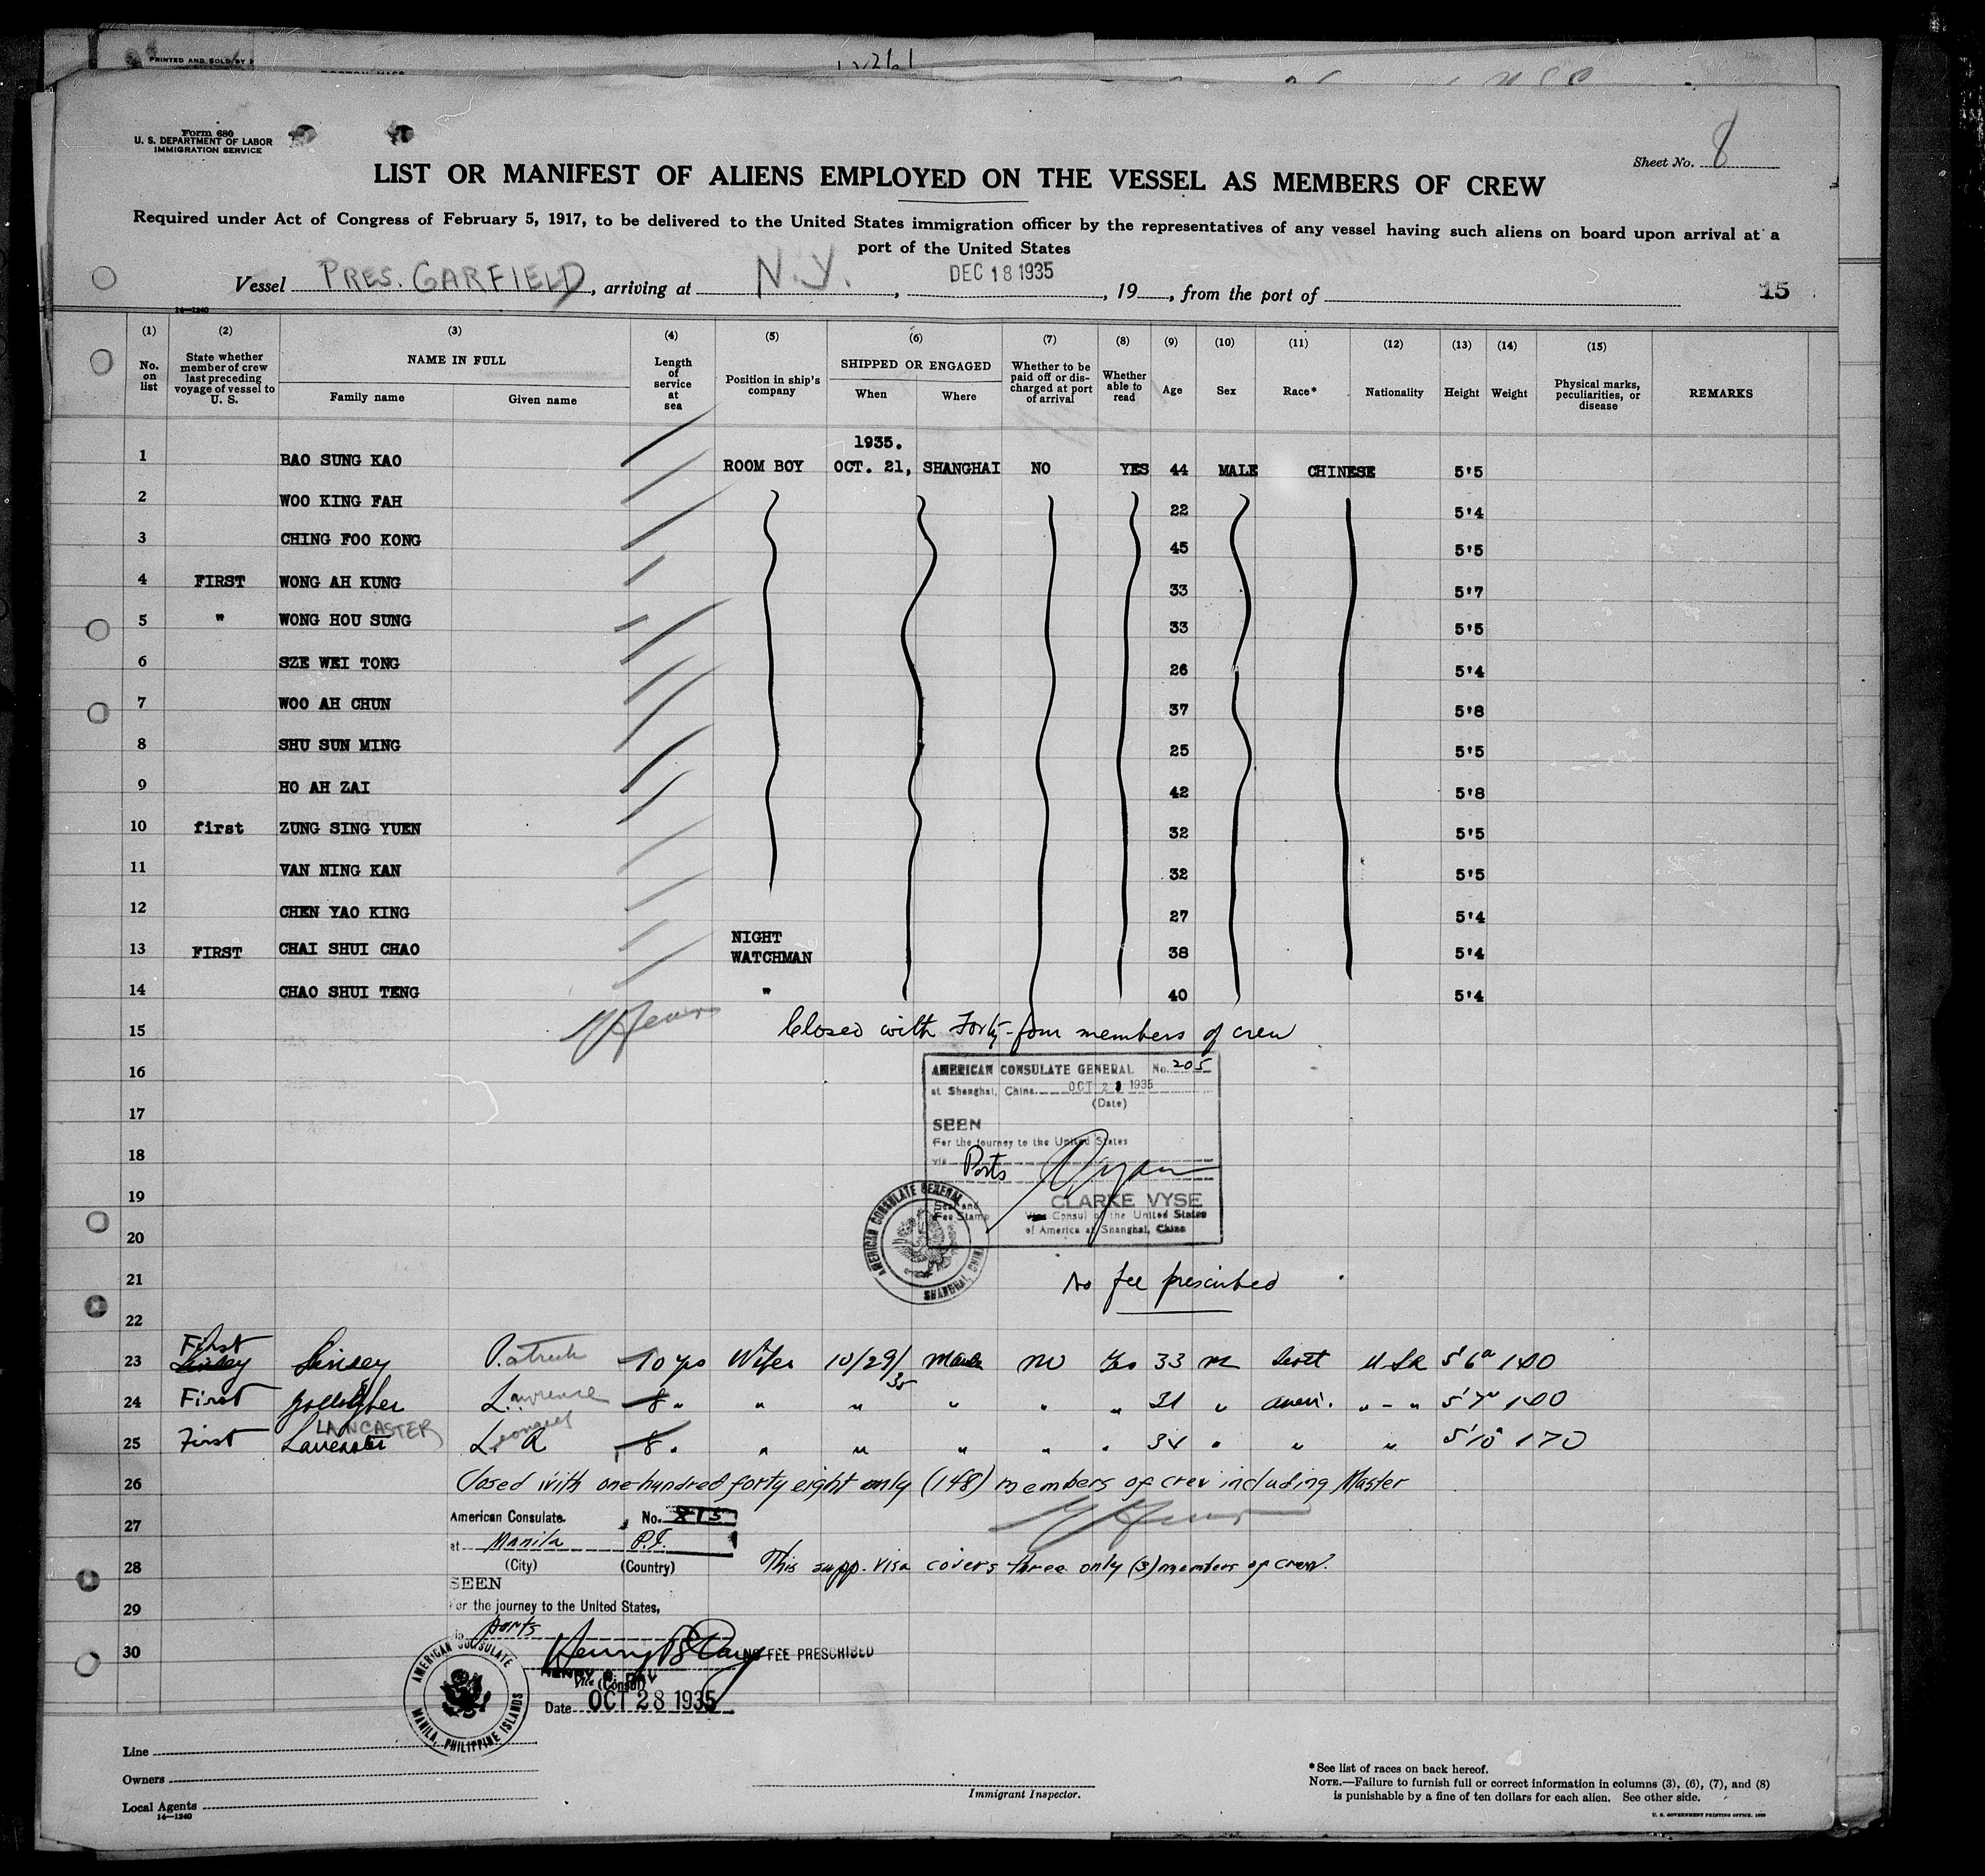 PRINTED AND SOLD BY
Form 680
U. S. DEPARTMENT OF LABOR
IMMIGRATION SERVICE
Sheet No. 8
LIST OR MANIFEST OF ALIENS EMPLOYED ON THE VESSEL AS MEMBERS OF CREW
Required under Act of Congress of February 5, 1917, to be delivered to the United States immigration officer by the representatives of any vessel having such aliens on board upon arrival at a
port of the United States
Vessel PRES. GARFIELD, arriving at N.Y., DEC 18 1935, 19__, from the port of 15
14—1240
(1) (2) (3) (4) (5) (6) (7) (8) (9) (10) (11) (12) (13) (14) (15)
No. on list
State whether member of crew last preceding voyage of vessel to U. S.
NAME IN FULL
Family name Given name
Length of service at sea
Position in ship's company
SHIPPED OR ENGAGED
When Where
Whether to be paid off or discharged at port of arrival
Whether able to read
Age Sex Race* Nationality Height Weight
Physical marks, peculiarities, or disease
REMARKS
1935.
1 BAO SUNG KAO ROOM BOY OCT. 21, SHANGHAI NO YES 44 MALE CHINESE 5'5
2 WOO KING FAH 22 5'4
3 CHING FOO KONG 45 5'5
4 FIRST WONG AH KUNG 33 5'7
5 " WONG HOU SUNG 33 5'5
6 SZE WEI TONG 26 5'4
7 WOO AH CHUN 37 5'8
8 SHU SUN MING 25 5'5
9 HO AH ZAI 42 5'8
10 first ZUNG SING YUEN 32 5'5
11 VAN NING KAN 32 5'5
12 CHEN YAO KING 27 5'4
13 FIRST CHAI SHUI CHAO NIGHT WATCHMAN 38 5'4
14 CHAO SHUI TENG " 40 5'4
15 Closed with Forty-four members of crew
16
AMERICAN CONSULATE GENERAL No. 205
at Shanghai, China OCT 21 1935
(Date)
17
SEEN
For the journey to the United States
18
via Ports
19
CLARKE VYSE
Seal and Fee Stamp
Vice Consul of the United States
of America at Shanghai, China
20
AMERICAN CONSULATE GENERAL SHANGHAI, CHINA
21 No fee prescribed
22
23 First Linsey Patrick 10 yrs Wiper 10/29/35 Manila NO Yes 33 M Scott USA 5'6" 140
24 First Lawrence 8 " " " " " " 31 " Amer. " - " 5'7" 140
25 First Lancaster LANCASTER L. A 8 " " " " " " 34 " " " 5'10" 170
26 Closed with one-hundred forty eight only (148) members of crew including Master
27
American Consulate. No. 215
at Manila P.I.
(City) (Country)
28 This supp. visa covers three only (3) members of crew.
SEEN
29
For the journey to the United States,
via ports
30
Henry B Day NO FEE PRESCRIBED
HENRY B. DAY
Vice (Consul)
Date OCT 28 1935
AMERICAN CONSULATE MANILA, PHILIPPINE ISLANDS
Line
Owners
Local Agents
14—1240
Immigrant Inspector.
*See list of races on back hereof.
NOTE.—Failure to furnish full or correct information in columns (3), (6), (7), and (8)
is punishable by a fine of ten dollars for each alien. See other side.
U. S. GOVERNMENT PRINTING OFFICE